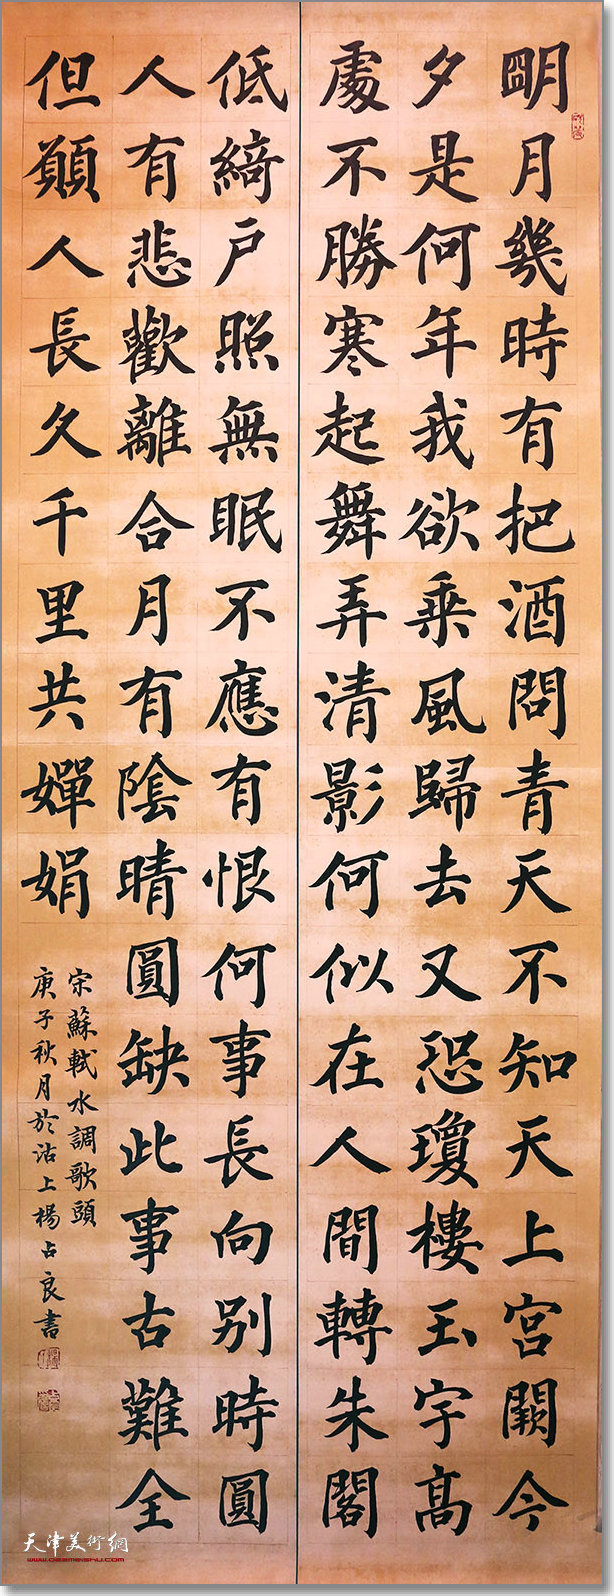 朙月幾時有把酒問青天不知天上宮闕今
夕是何年我欲乘風歸去又恐瓊樓玉宇高
處不勝寒起舞弄清影何似在人間轉朱閣
低綺戶照無眠不應有恨何事長向别時圓
人有悲歡離合月有陰晴圓缺此事古難全
但願人長久千里共嬋娟
宋蘇軾水調歌頭
庚子秋月於沽上楊占良書
天津美術網